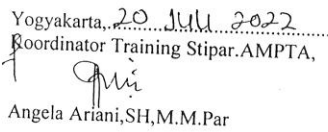 Yogyakarta, 20 JULI 2022
Koordinator Training Stipar.AMPTA,
Angela Ariani,SH,M.M.Par